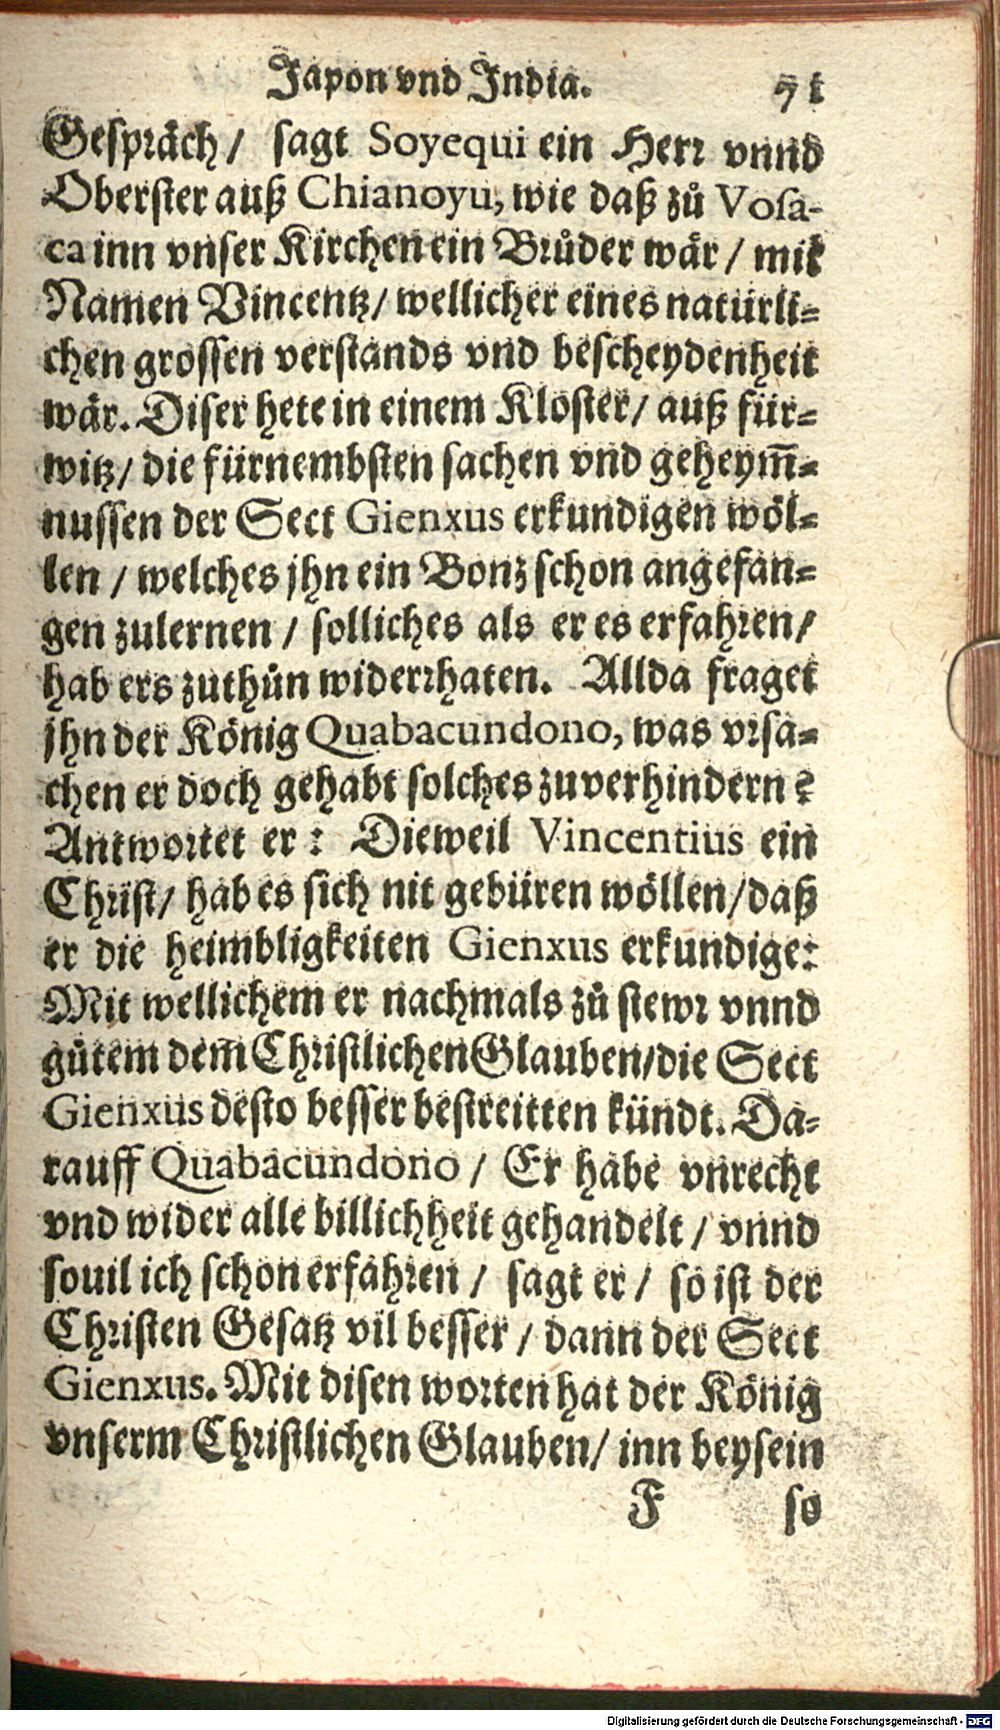 Japon vnd India. 71
Gespräch / sagt Soyequi ein Herr vnnd
Oberster auß Chianoyu, wie daß zů Vosa-
ca inn vnser Kirchen ein Brůder wär / mit
Namen Vincentz / wellicher eines natürli-
chen grossen verstands vnd bescheydenheit
wär. Diser hete in einem Kloster / auß für-
witz / die fürnembsten sachen vnd geheym̃-
nussen der Sect Gienxus erkundigen wöl-
len / welches jhn ein Bonz schon angefan-
gen zulernen / solliches als er es erfahren /
hab ers zuthůn widerrhaten. Allda fraget
jhn der König Quabacundono, was vrsa-
chen er doch gehabt solches zuverhindern?
Antwortet er: Dieweil Vincentius ein
Christ / hab es sich nit gebüren wöllen / daß
er die heimbligkeiten Gienxus erkundige:
Mit wellichem er nachmals zů stewr vnnd
gůtem dem̃ Christlichen Glauben / die Sect
Gienxus desto besser bestreitten kündt. Da-
rauff Quabacundono / Er habe vnrecht
vnd wider alle billichheit gehandelt / vnnd
souil ich schon erfahren / sagt er / so ist der
Christen Gesatz vil besser / dann der Sect
Gienxus. Mit disen worten hat der König
vnserm Christlichen Glauben / inn beysein
F so
Digitalisierung gefördert durch die Deutsche Forschungsgemeinschaft - DFG